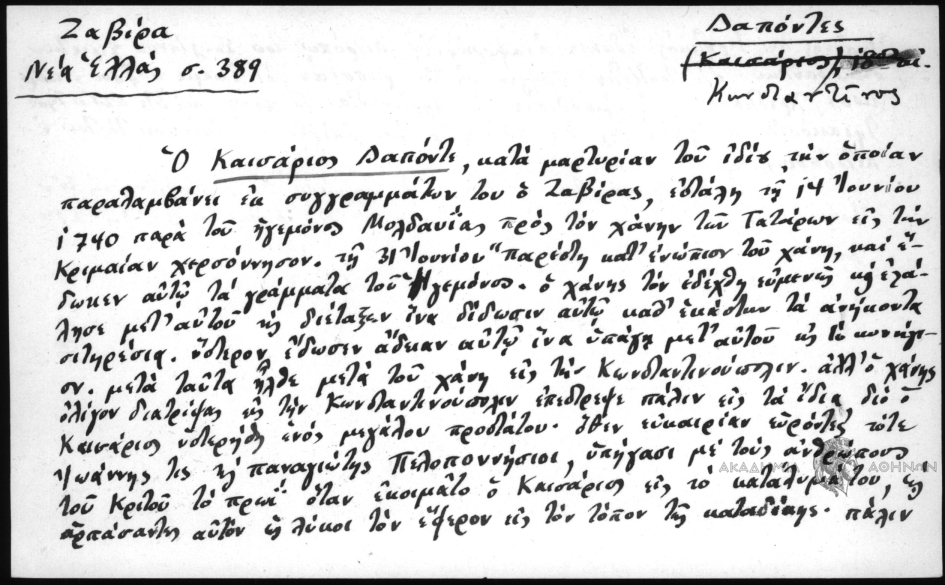 Ζαβίρα
Νέα Ἑλλάς σ. 389
Δαπόντες
(Καισάριος)
Κωνσταντῖνος
Ὁ Καισάριος Δαπόντε, κατά μαρτυρίαν τοῦ ἰδίου τήν ὁποίαν
παραλαμβάνει ἐκ συγγραμμάτων του ὁ Ζαβίρας, ἐστάλη τῇ 14 Ἰουνίου
1740 παρά τοῦ ἡγεμόνος Μολδαυΐας πρός τόν χάνην τῶν Τατάρων εἰς τήν
Κριμαίαν χερσόνησον. τῇ 31 Ἰουνίου "παρέστη κατ' ἐνώπιον τοῦ χάνη, καί ἔ-
δωκεν αὐτῷ τά γράμματα τοῦ Ἡγεμόνος. ὁ χάνης τόν ἐδέχθη εὐμενῶς κ ἐλά-
λησε μετ' αὐτοῦ κ διέταξεν ἵνα δίδωσιν αὐτῷ καθ' ἑκάστην τά ἀνήκοντα
σιτηρέσια. ὕστερον ἔδωσεν ἄδειαν αὐτῷ ἵνα ὑπάγῃ μετ' αὐτοῦ εἰς τό κυνήγι-
ον. μετά ταῦτα ἦλθε μετά τοῦ χάνη εἰς τήν Κωνσταντινούπολιν. ἀλλ' ὁ χάνης
ὀλίγον διατρίψας εἰς τήν Κωνσταντινούπολιν ἐπέστρεψε πάλιν εἰς τά ἴδια διό ὁ
Καισάριος ὑστερήθη ἑνός μεγάλου προστάτου. ὅθεν εὐκαιρίαν εὑρόντες τότε
Ἰωάννης τις κ παναγιώτης Πελοποννήσιοι, ὑπήγασι μέ τούς ἀνθρώπους
τοῦ Κριτοῦ τό πρωΐ ὅταν ἐκοιμᾶτο ὁ Καισάριος εἰς τό κατάλυμα του, κ
ἁρπάσαντες αὐτόν ὡς λύκοι τόν ἔφερον εἰς τόν τόπον τῆς καταδίκης. πάλιν
ΑΚΑΔΗΜΙΑ ΑΘΗΝΩΝ